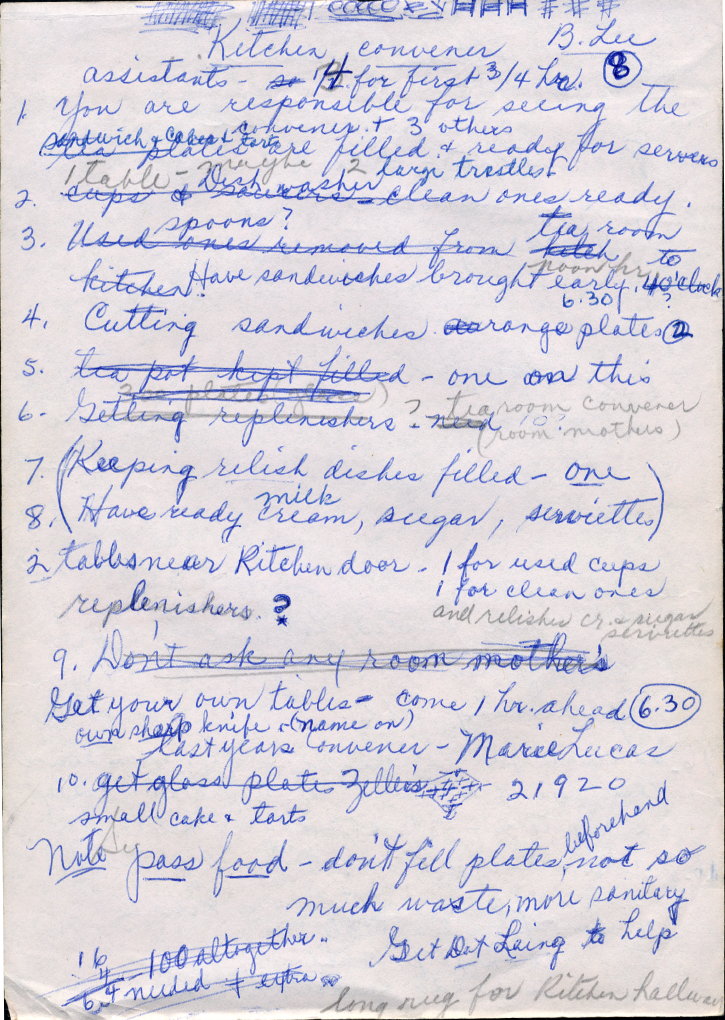 Kitchen convener B. Lee
assistants - 4 for first 3/4 hr. 8
1. You are responsible for seeing the
convener + 3 others
sandwich & cakes & tarts
tea plates are filled & ready for servers
1 table - maybe 2 large trestles
Dish washer
2. cups & saucers - clean ones ready.
spoons?
3. Used ones removed from kitch tea room to
kitchen. Have sandwiches brought early. 4 o'clock
6.30 ?
4. Cutting sandwiches arrange plates 2
5. tea pot kept filled - one on this
6. Getting replenishers? - need tea room convener
(room mothers)
7. (Keeping relish dishes filled - one
milk
8. Have ready cream, sugar, serviettes)
2 tables near Kitchen door - 1 for used cups
1 for clean ones
replenishers. ?
and relishes cr. & sugar
serviettes
9. Don't ask any room mothers
Get your own tables - come 1 hr. ahead 6.30
own sharp knife - (name on)
last years convener - Marie Lucas
10. get glass plates Zeller's 21920
small cake & tarts
Note pass food - don't fill plates, beforehand not so
much waste, more sanitary
16 100 altogether..
Get Dot Laing to help
64 needed + extra
long rug for Kitchen hallway